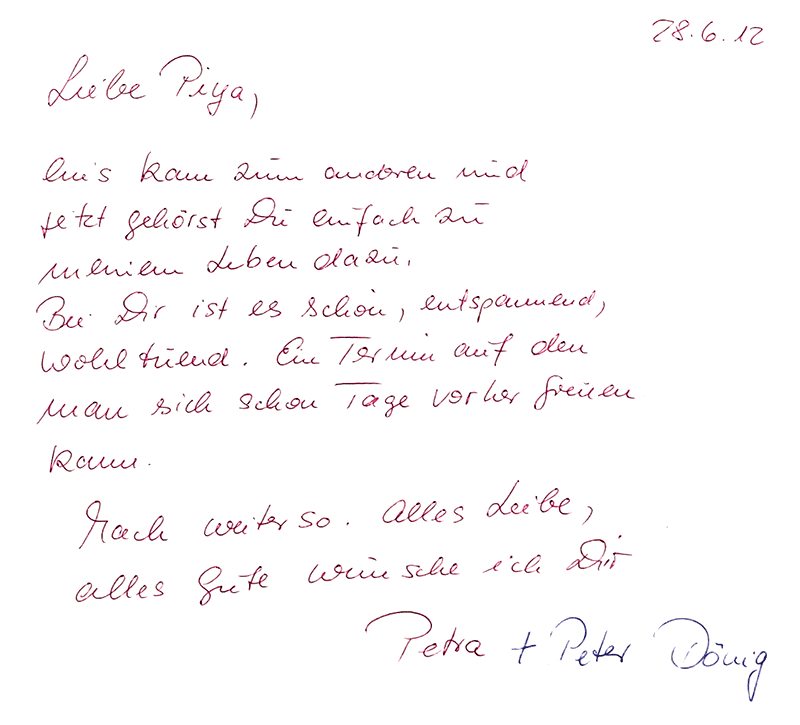 28.6.12
Liebe Piya,
eins kam zum anderen und
jetzt gehörst Du einfach zu
meinem Leben dazu.
Bei Dir ist es schön, entspannend,
wohltuend. Ein Termin auf den
man sich schon Tage vorher freuen
kann.
Mach weiter so. Alles Liebe,
alles Gute wünsche ich Dir
Petra + Peter Dönig